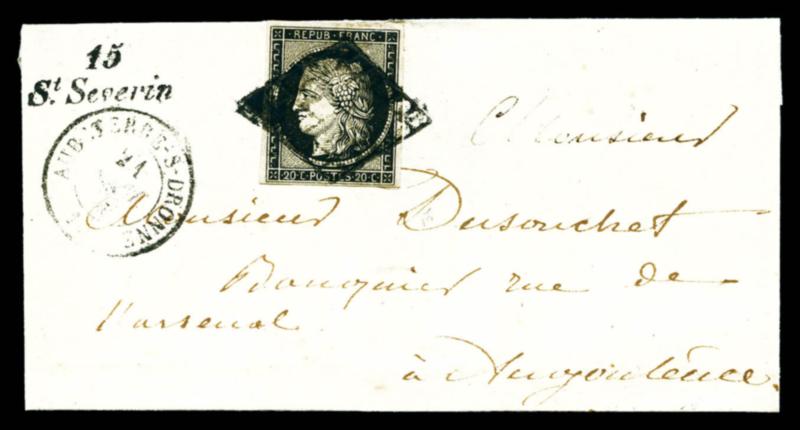 15
St. Severin
AUBETERRE-S-DRONNE
21
REPUB. FRANC.
20.C.POSTES.20.C
Monsieur
Monsieur Dusouchet
Banquier rue de
l'arsenal
à Angoulême.